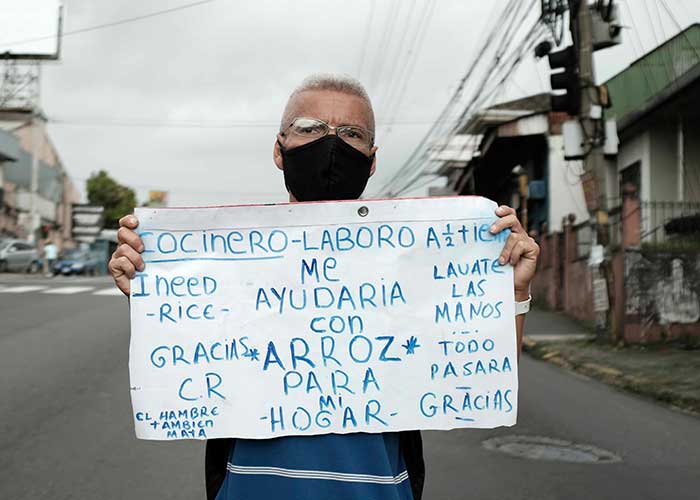 COCINERO-LABORO A ½ tiem
I need
-RICE-
GRACIAS
C.R
EL HAMBRE
tAMBIEN
MATA
ME
AYUDARIA
con
*ARROZ*
PARA
mi
-HOGAR-
LAVATE
LAS
MANOS
...
TODO
PASARA
GRACIAS